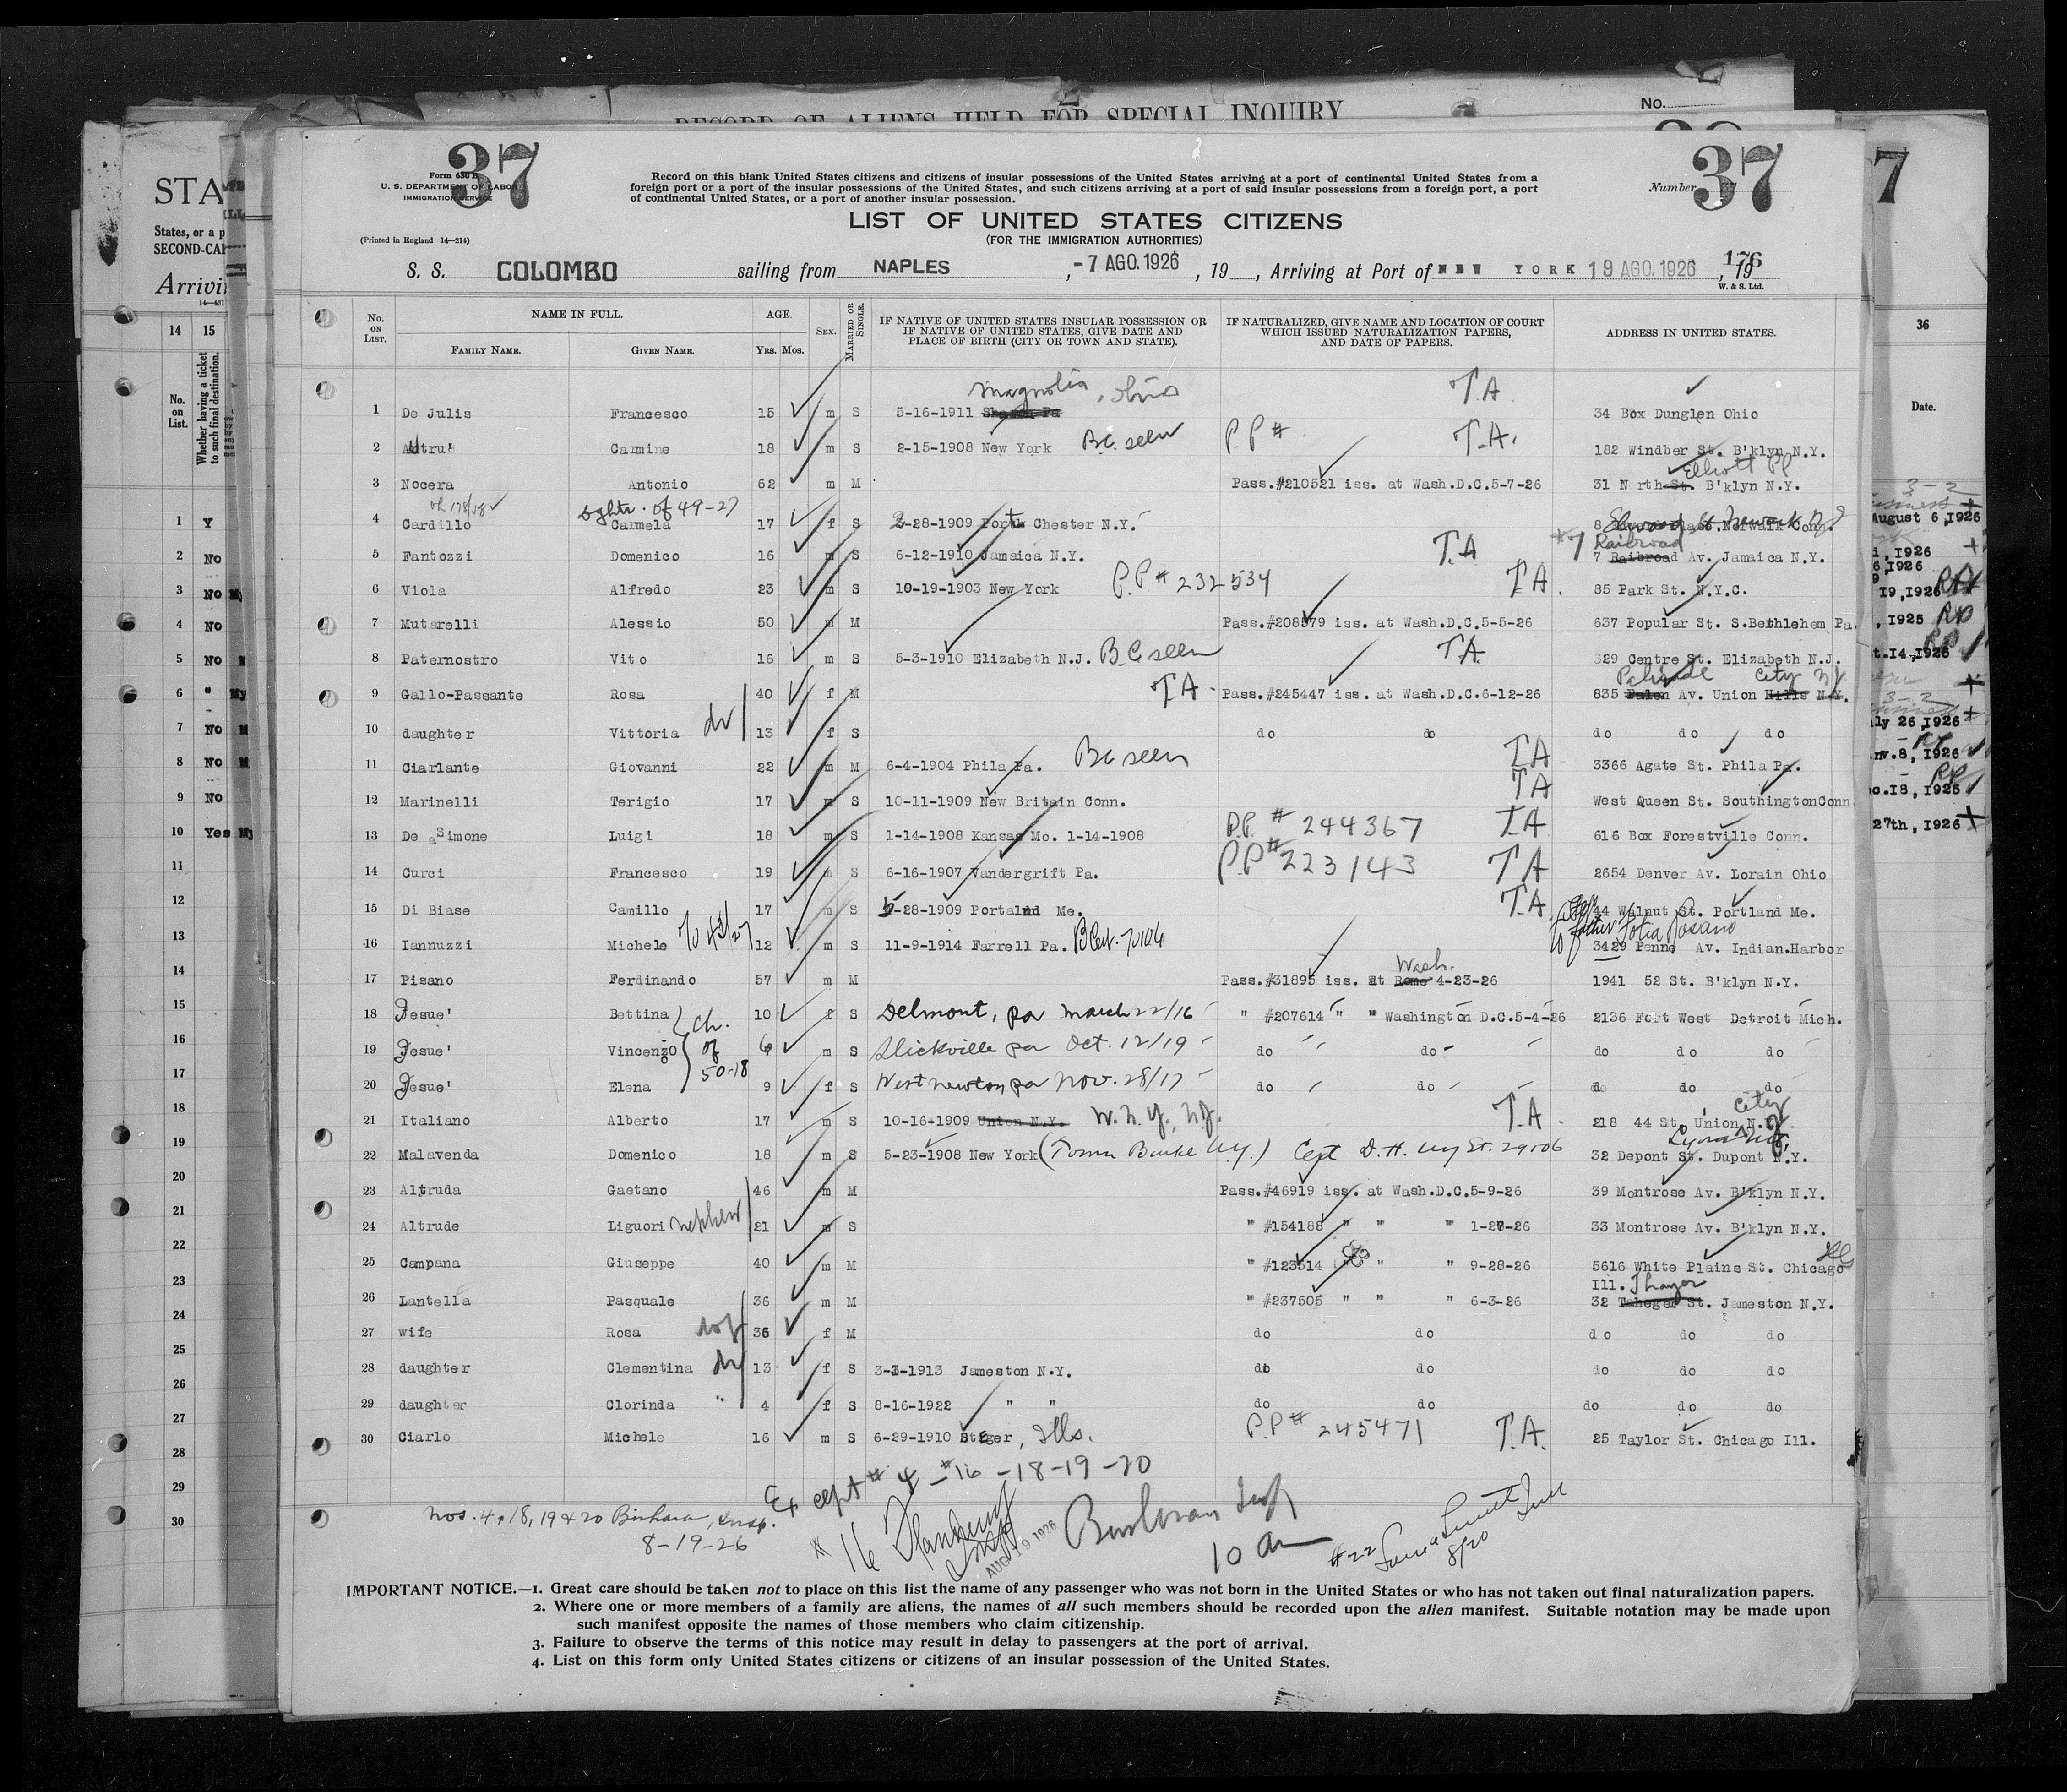 RECORD OF ALIENS HELD FOR SPECIAL INQUIRY
No.
37
Form 630 B
U. S. DEPARTMENT OF LABOR
IMMIGRATION SERVICE
(Printed in England 14—214)
Record on this blank United States citizens and citizens of insular possessions of the United States arriving at a port of continental United States from a
foreign port or a port of the insular possessions of the United States, and such citizens arriving at a port of said insular possessions from a foreign port, a port
of continental United States, or a port of another insular possession.
Number 37
LIST OF UNITED STATES CITIZENS
(FOR THE IMMIGRATION AUTHORITIES)
S. S. COLOMBO sailing from NAPLES, -7 AGO. 1926, 19 , Arriving at Port of NEW YORK 19 AGO. 1926, 19
176
W. & S. Ltd.
No. on List. NAME IN FULL. Family Name. Given Name. AGE. Yrs. Mos. Sex. Married or Single. IF NATIVE OF UNITED STATES INSULAR POSSESSION OR IF NATIVE OF UNITED STATES, GIVE DATE AND PLACE OF BIRTH (CITY OR TOWN AND STATE). IF NATURALIZED, GIVE NAME AND LOCATION OF COURT WHICH ISSUED NATURALIZATION PAPERS, AND DATE OF PAPERS. ADDRESS IN UNITED STATES.
Magnolia, Ohio T.A
1 De Julis Francesco 15 m S 5-16-1911 Sharon Pa 34 Box Dunglen Ohio
2 Carmine 18 m S 2-15-1908 New York B.C. seen P.P # T.A. 182 Windber St. B'klyn N.Y.
Elliott Pl
3 Nocera Antonio 62 m M Pass.#210521 iss. at Wash.D.C.5-7-26 31 North St. B'klyn N.Y.
dghtr. of 49-27
4 Cardillo Carmela 17 f S 2-28-1909 Port Chester N.Y. Norwalk Conn.
Railroad
5 Fantozzi Domenico 16 m S 6-12-1910 Jamaica N.Y. T.A #7 7 Raibroad Av. Jamaica N.Y.
6 Viola Alfredo 23 m S 10-19-1903 New York P.P.# 232534 T.A. 85 Park St. N.Y.C.
7 Mutarelli Alessio 50 m M Pass.#208579 iss. at Wash.D.C.5-5-26 637 Popular St. S.Bethlehem Pa.
8 Paternostro Vito 16 m S 5-3-1910 Elizabeth N.J. B.C. seen T.A. 329 Centre St. Elizabeth N.J.
Palisade City N.J.
9 Gallo-Passante Rosa 40 f M T.A. Pass.#245447 iss. at Wash.D.C.6-12-26 835 Palen Av. Union Hills N.Y.
10 daughter Vittoria dr 13 f S do do do do do
11 Ciarlante Giovanni 22 m M 6-4-1904 Phila Pa. BC seen T A 3366 Agate St. Phila Pa.
12 Marinelli Terigio 17 m S 10-11-1909 New Britain Conn. T A West Queen St. SouthingtonConn
13 De Simone Luigi 18 m S 1-14-1908 Kansas Mo. 1-14-1908 P.P. # 244367 T.A 616 Box Forestville Conn.
14 Curci Francesco 19 m S 6-16-1907 Vandergrift Pa. P.P # 223143 T A 2654 Denver Av. Lorain Ohio
15 Di Biase Camillo 17 m S 5-28-1909 Portalnd Me. T.A. 44 Walnut St. Portland Me.
to father
16 Iannuzzi Michele 12 m S 11-9-1914 Farrell Pa. 3429 Penne Av. Indian.Harbor
Wash.
17 Pisano Ferdinando 57 m M Pass.#31895 iss. at Rome 4-23-26 1941 52 St. B'klyn N.Y.
18 Jesue' Bettina ch. 10 f S Delmont, pa march 22/16 " #207614 " " Washington D.C.5-4-26 2136 Fort West Detroit Mich.
19 Jesue' Vincenzo of 6 m S Slickville pa Oct. 12/19 do do do do do
50-18
20 Jesue' Elena 9 f S West newton pa Nov. 28/17 do do do do do
City
21 Italiano Alberto 17 m S 10-16-1909 Union N.Y. W.N.Y., N.J. T.A 218 44 St. Union N.Y.
22 Malavenda Domenico 18 m S 5-23-1908 New York 32 Depont St. Dupont N.Y.
23 Altruda Gaetano 46 m M Pass.#46919 iss. at Wash.D.C.5-9-26 39 Montrose Av. B'klyn N.Y.
24 Altrude Liguori nephew 21 m S " #154188 " " " 1-27-26 33 Montrose Av. B'klyn N.Y.
25 Campana Giuseppe 40 m M " #123514 " " " 9-28-26 5616 White Plains St. Chicago
Ill. Thayer
26 Lantella Pasquale 36 m M " #237505 " " " 6-3-26 32 Taheger St. Jameston N.Y.
27 wife Rosa wf 36 f M do do do do do
28 daughter Clementina dr 13 f S 3-3-1913 Jameston N.Y. do do do do do
29 daughter Clorinda " 4 f S 8-16-1922 " " do do do do do
30 Ciarlo Michele 16 m S 6-29-1910 Steger, Ills. P.P # 245471 T.A. 25 Taylor St. Chicago Ill.
Except # 4 - #16 - 18-19-20
Nos. 4, 18, 19 & 20 Insp.
8-19-26
# 16
AUG 19 1926
10 am
#22
8/20
IMPORTANT NOTICE.—1. Great care should be taken not to place on this list the name of any passenger who was not born in the United States or who has not taken out final naturalization papers.
2. Where one or more members of a family are aliens, the names of all such members should be recorded upon the alien manifest. Suitable notation may be made upon
such manifest opposite the names of those members who claim citizenship.
3. Failure to observe the terms of this notice may result in delay to passengers at the port of arrival.
4. List on this form only United States citizens or citizens of an insular possession of the United States.
STA
States, or a p
SECOND-CA
Arrivi
14 15
No. on List.
Whether having a ticket to such final destination.
1 Y
2 No
3 No
4 No
5 No
6 "
7 No
8 No
9 No
10 Yes
11
12
13
14
15
16
17
18
19
20
21
22
23
24
25
26
27
28
29
30
7
36
Date.
August 6,1926
, 1926
6,1926
19,1926
, 1925
t.14,1926
ly 26,1926
nv.8,1926
c.18,1925
27th,1926